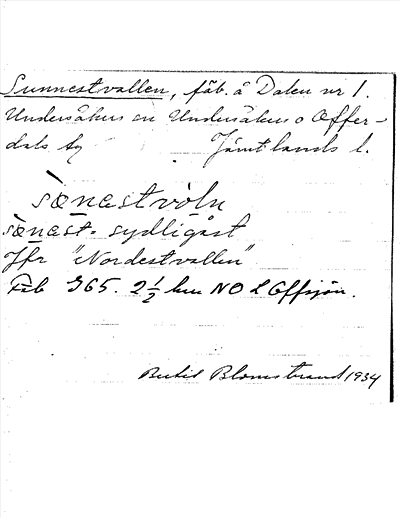 Sunnestvallen, fäb. å Dalen nr 1.
Undersåkers sn Undersåkers o Offer-
dals tg Jämtlands l.
sɶnestvɔ̀ln
sɶnest- sydligast
Jfr "Nordestvallen"
Fäb 365. 2 1/2 km NO L Offsjön.
Bertil Blomstrand 1934